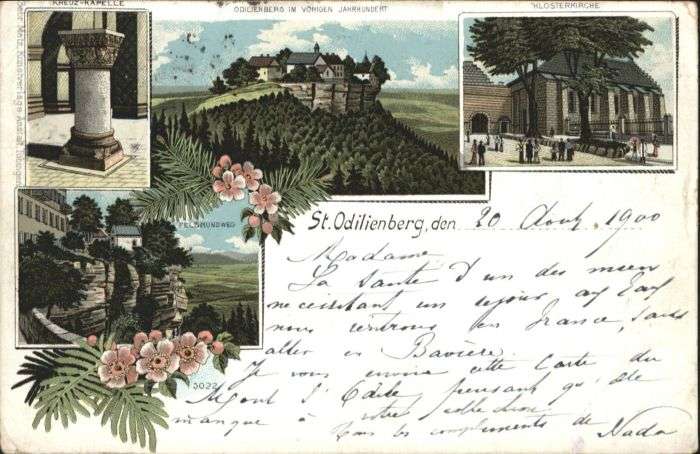 KREUZ-KAPELLE
ODILIENBERG IM VORIGEN JAHRHUNDERT
KLOSTERKIRCHE
FELSMUNDWEG
3022
St. Odilienberg, den 20 Aout 1900
Madame.
La santé d'un des miens
nécessitant un séjour au
nous rentrons en France, sans
aller en Bavière.
Je vous envoie cette Carte du
Mont Ste Odile pensant qu'elle
manque à votre collection
Tous les compliments de Nada